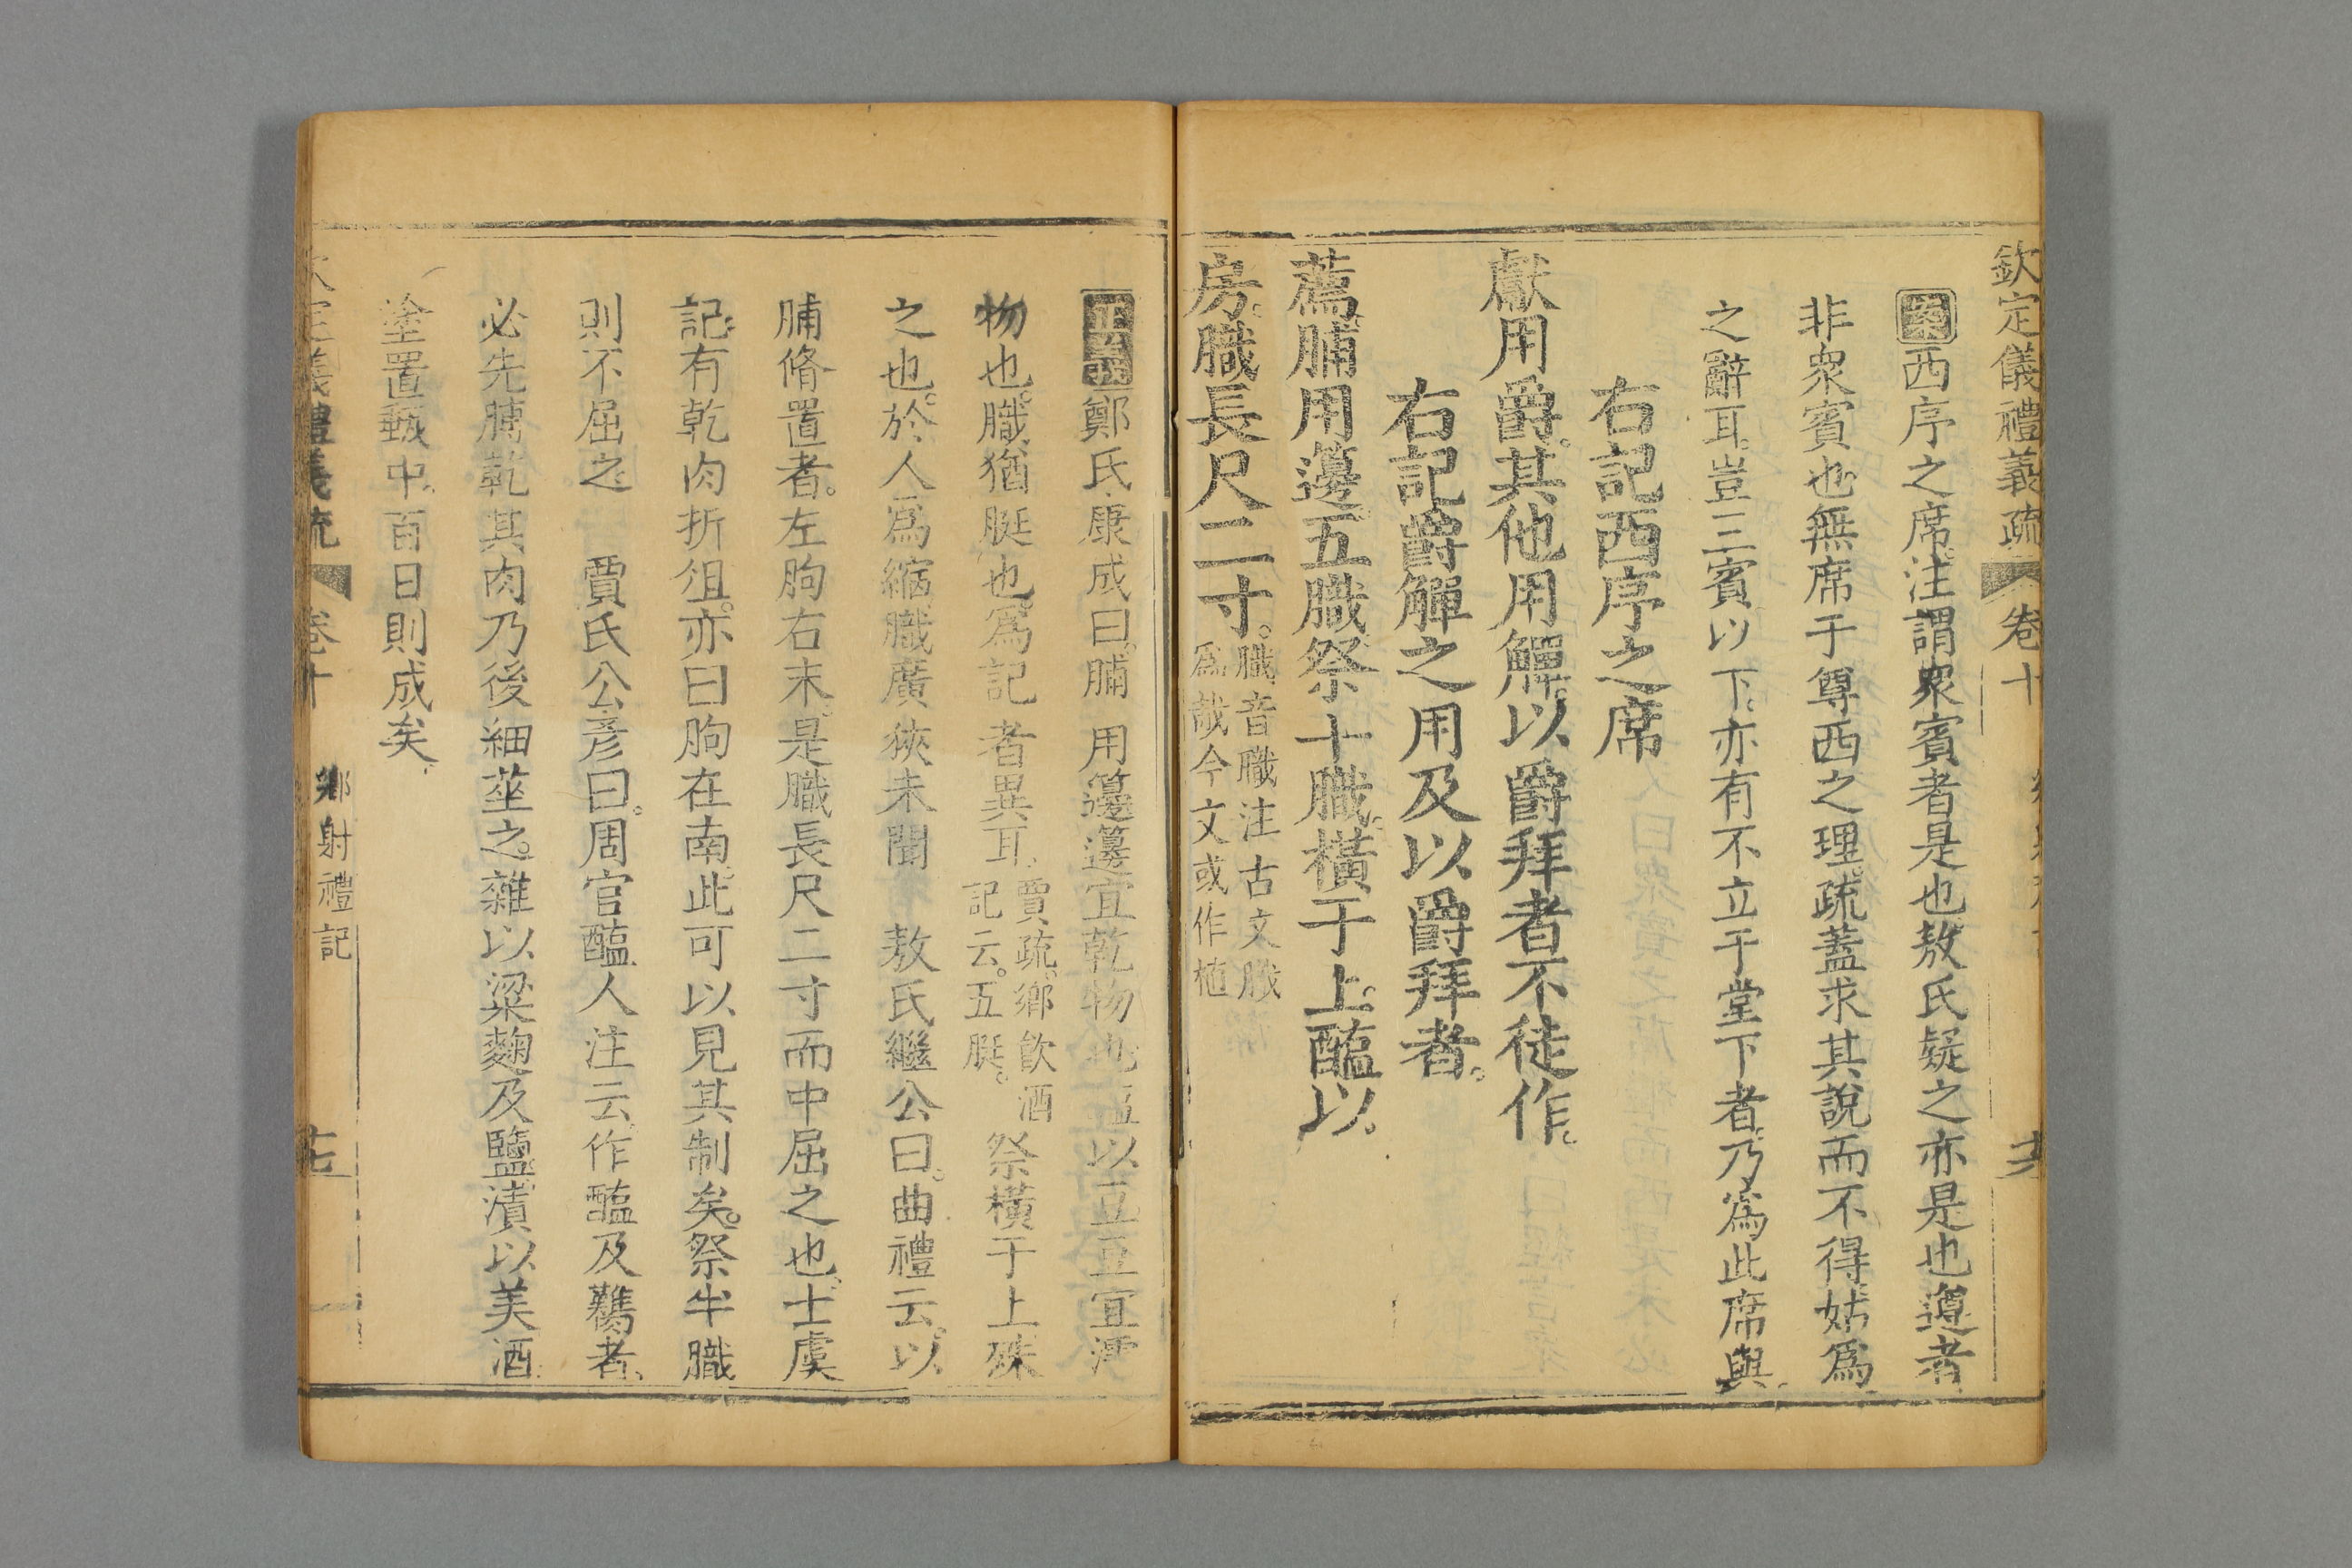 欽定儀禮義疏 卷十
案西序之席注謂衆賓者是也敖氏疑之亦是也遵者
非衆賓也無席于尊西之理疏蓋求其說而不得姑爲
之辭耳豈三賓以下亦有不立于堂下者乃爲此席與
右記西序之席
獻用爵其他用觶以爵拜者不徒作
右記爵觶之用及以爵拜者
薦脯用籩五膱祭半膱橫于上醢以
房膱長尺二寸膱音職注古文膱
爲胾今文或作植
正義鄭氏康成曰脯用籩籩宜乾物也醢以豆豆宜濡
物也膱猶脡也爲記者異耳賈疏鄉飲酒
記云五脡祭橫于上殊
之也於人爲縮膱廣狹未聞 敖氏繼公曰曲禮云以
脯脩置者左朐右末是膱長尺二寸而中屈之也士虞
記有乾肉折俎亦曰朐在南此可以見其制矣祭半膱
則不屈之 賈氏公彥曰周官醢人注云作醢及臡者
必先膊乾其肉乃後細莝之雜以粱麴及鹽漬以美酒
塗置甀中百日則成矣
卷十 鄉射禮記